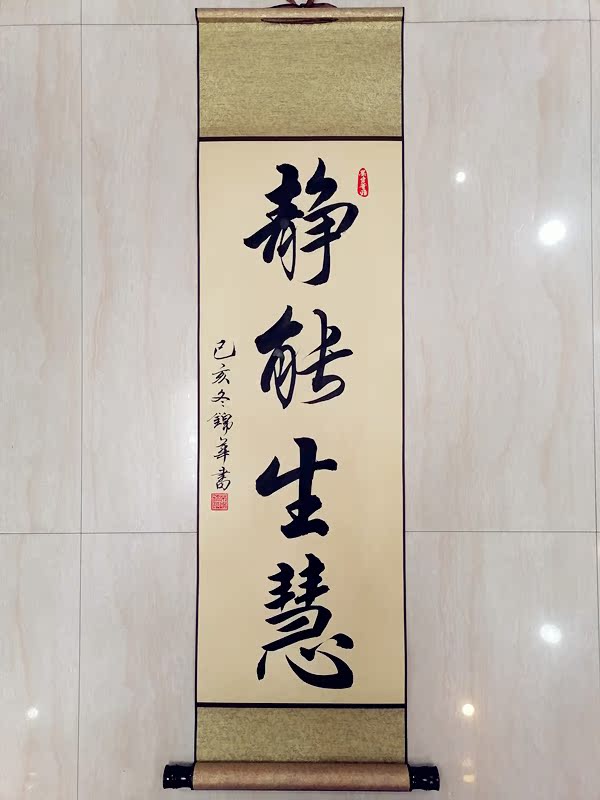 静能生慧
己亥冬錦華書